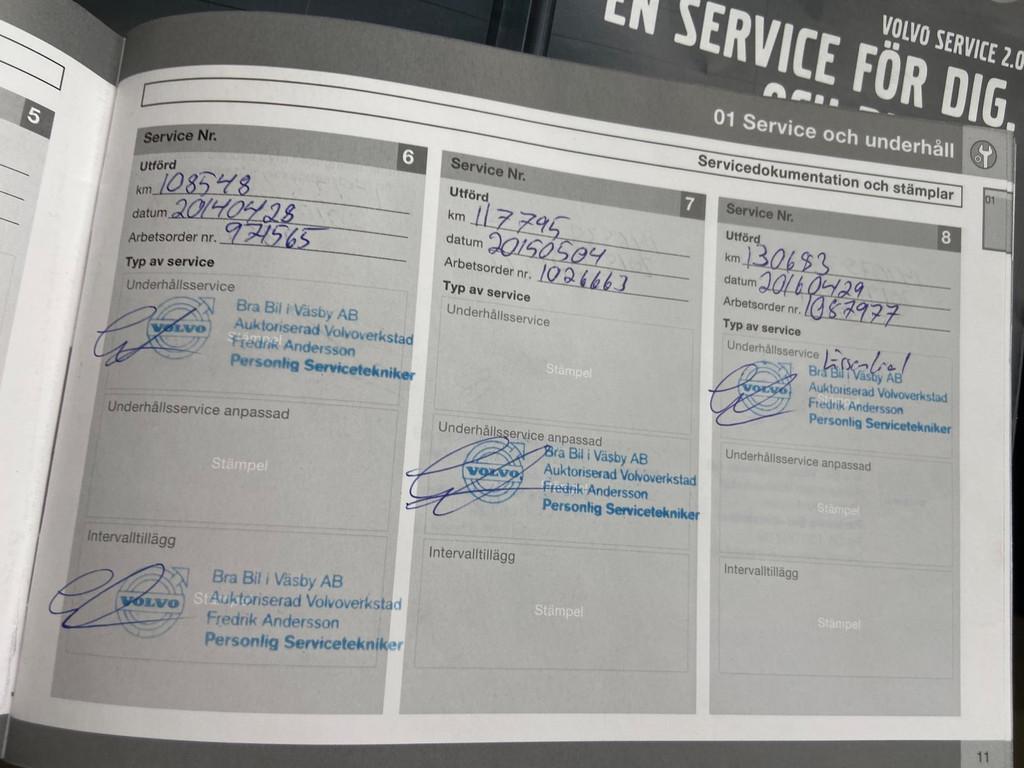 EN SERVICE FÖR DIG,
VOLVO SERVICE 2.0
01 Service och underhåll
Servicedokumentation och stämplar
01
5
Service Nr. 6
Utförd
km 108548
datum 20140428
Arbetsorder nr. 971565
Typ av service
Underhållsservice
VOLVO
Bra Bil i Väsby AB
Auktoriserad Volvoverkstad
Fredrik Andersson
Personlig Servicetekniker
Underhållsservice anpassad
Stämpel
Intervalltillägg
VOLVO
Bra Bil i Väsby AB
Auktoriserad Volvoverkstad
Fredrik Andersson
Personlig Servicetekniker
Service Nr. 7
Utförd
km 117795
datum 20150504
Arbetsorder nr. 1026663
Typ av service
Underhållsservice
Stämpel
Underhållsservice anpassad
VOLVO
Bra Bil i Väsby AB
Auktoriserad Volvoverkstad
Fredrik Andersson
Personlig Servicetekniker
Intervalltillägg
Stämpel
Service Nr. 8
Utförd
km 130683
datum 20160429
Arbetsorder nr. 1087977
Typ av service
Underhållsservice Essential
VOLVO
Bra Bil i Väsby AB
Auktoriserad Volvoverkstad
Fredrik Andersson
Personlig Servicetekniker
Underhållsservice anpassad
Stämpel
Intervalltillägg
Stämpel
11